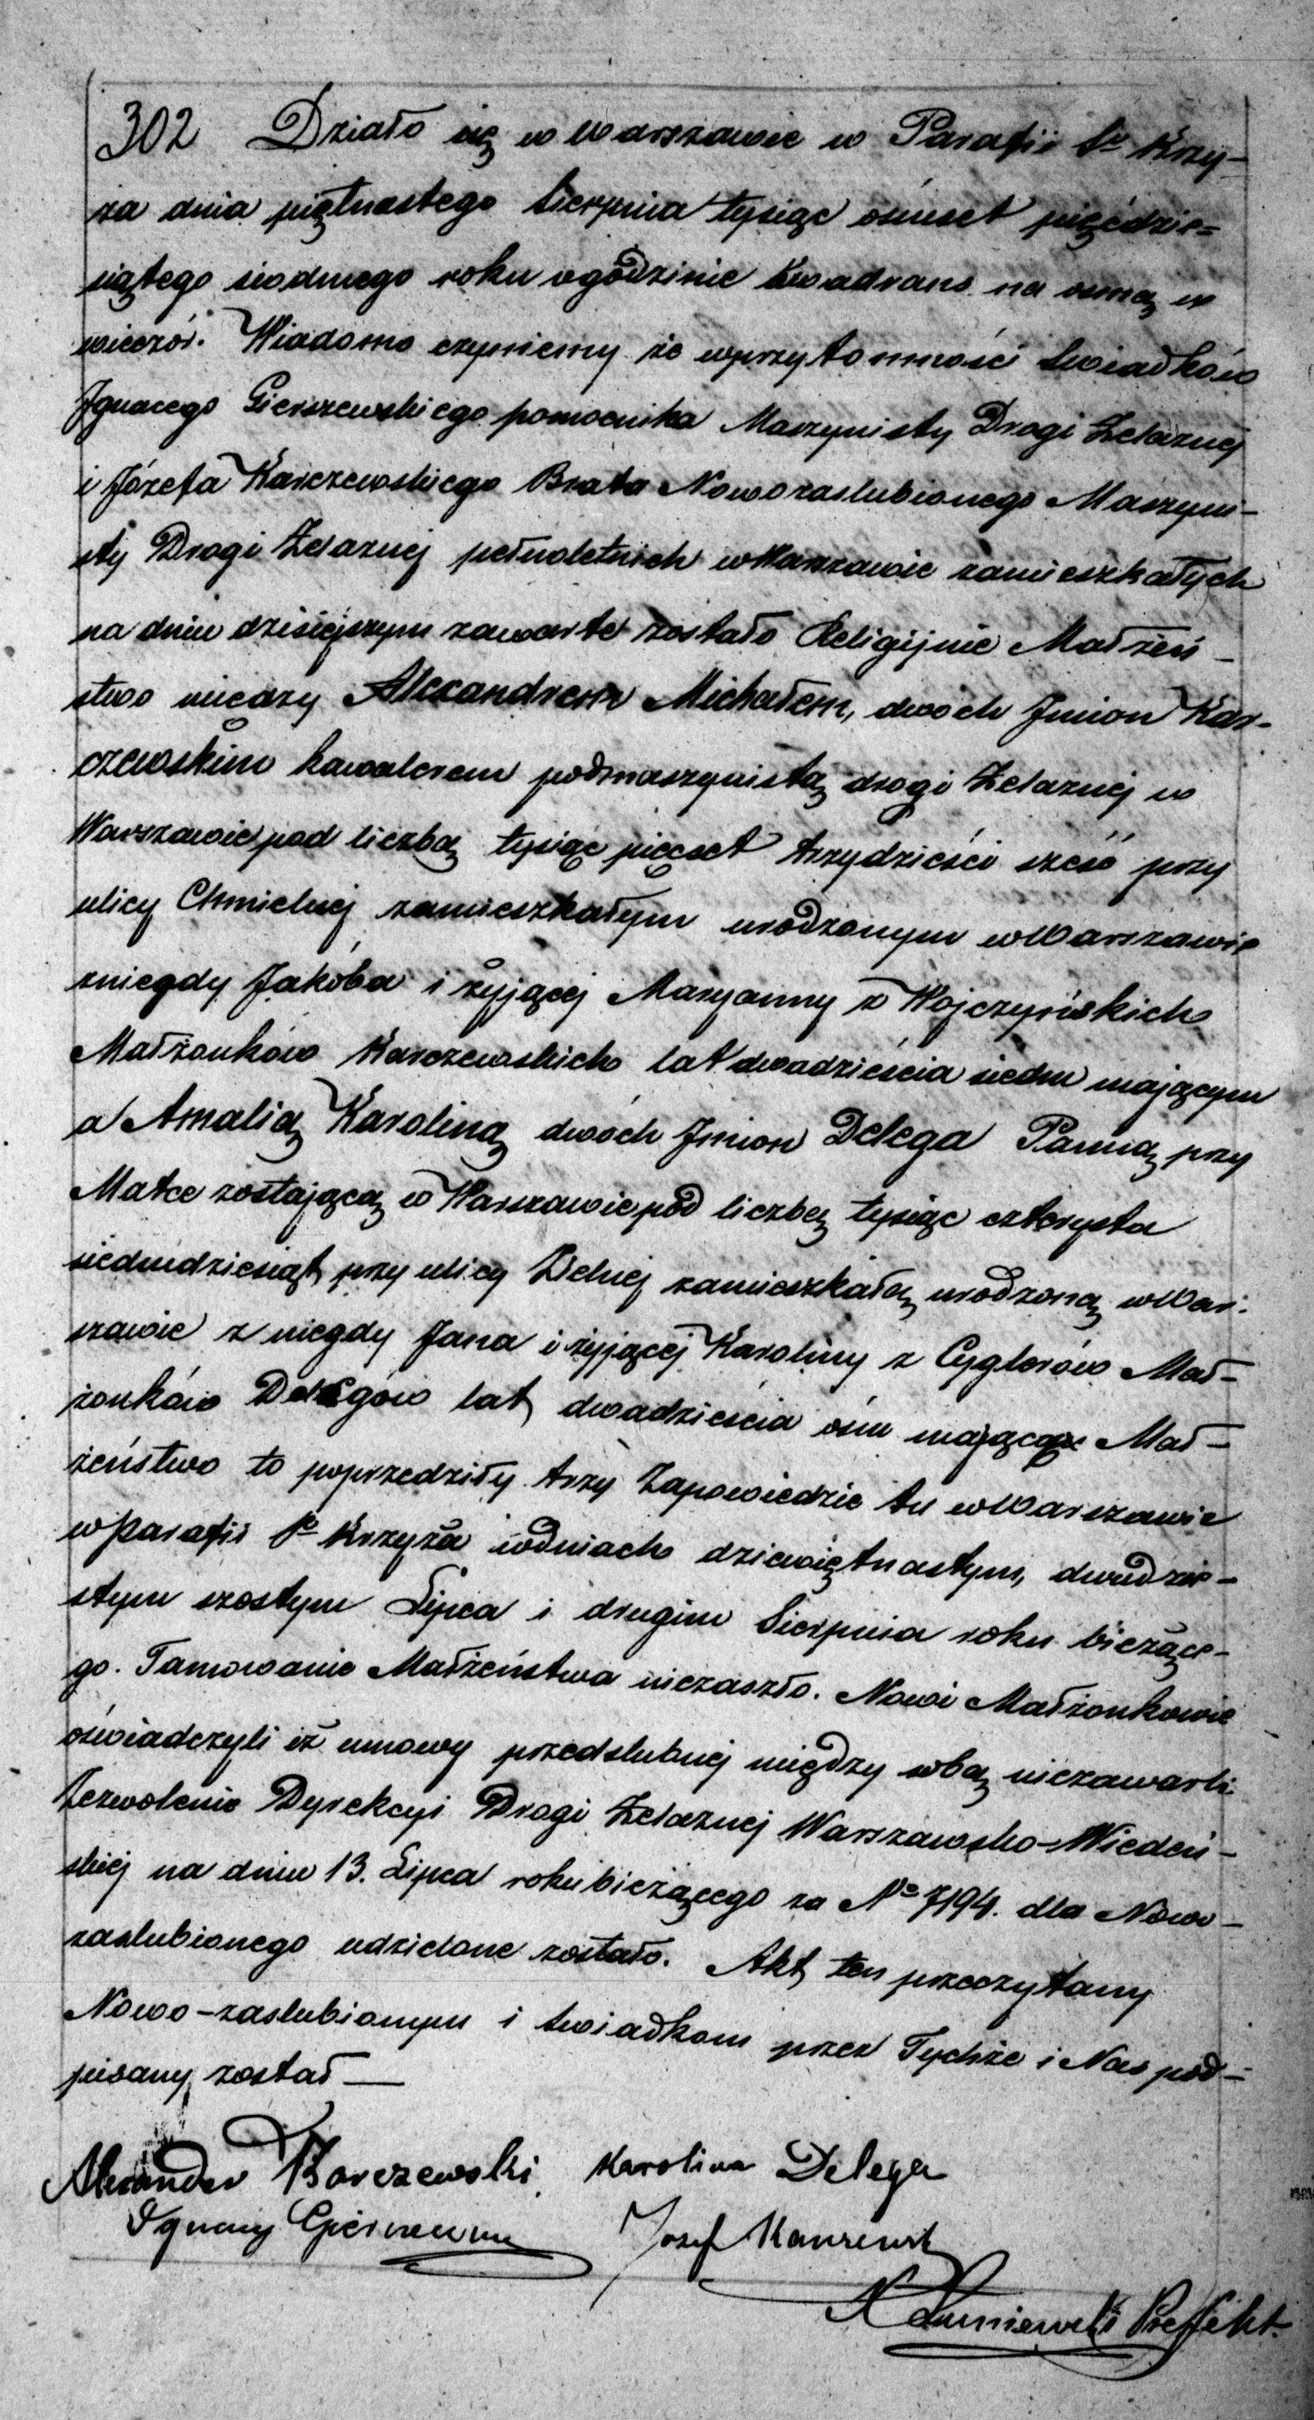 302 Działo się w Warszawie w Parafii Sº Krzy-
ża dnia piętnastego Sierpnia tysiąc ośmset pięćdzie=
siątego siodmego roku o godzinie kwadrans na osmą w
wieczór. Wiadomo czyniemy że w przytomności Swiadków
Ignacego Gierszewskiego pomocnika Maszynisty Drogi Żelaznej
i Józefa Karczewskiego Brata Nowozaslubionego Maszyni-
sty Drogi Żelaznej pełnoletnich w Warszawie zamieszkałych
na dniu dzisiejszym zawarte zostało Religijnie Małżeń-
stwo miedzy Alexandrem Michałem, dwóch Imion Kar-
czewskim kawalerem podmaszynistą drogi Żelaznej w
Warszawie pod liczbą tysiąc pięcset trzydzieści sześć przy
ulicy Chmielnej zamieszkałym urodzonym w Warszawie
z niegdy Jakóba i żyjącej Maryanny z Wojczyńskich
Małżonków Karczewskich lat dwadzieścia siedm mającym
a Amalią Karoliną dwóch Imion Delega Panną przy
Matce zostającą w Warszawie pod liczbą tysiąc czterysta
siedmdziesiąt przy ulicy Zielnej zamieszkałą urodzoną w War-
szawie z niegdy Jana i żyjącej Karoliny z Cyglerów Mał-
żonków Delegów lat dwadzieścia ośm mającą Mał-
żeństwo to poprzedziły trzy Zapowiedzie tu w Warszawie
w Parafii Sº Krzyża w dniach dziewiętnastym, dwudzie-
stym szostym Lipca i drugim Sierpnia roku bieżące-
go. Tamowanie Małżeństwa niezaszło. Nowi Małżonkowie
oświadczyli iż umowy przedslubnej między sobą niezawarli.
Zezwolenie Dyrekcyi Drogi Żelaznej Warszawsko-Wiedeń-
skiej na dniu 13. Lipca roku bieżącego za Nº 7194. dla Nowo-
zaslubionego udzielone zostało. Akt ten przeczytany
Nowo-zaslubionym i Swiadkom przez Tychże i Nas pod-
pisany został —
Alexander Karczewski Karolina Delega
Ignacy Józef
Preffekt.